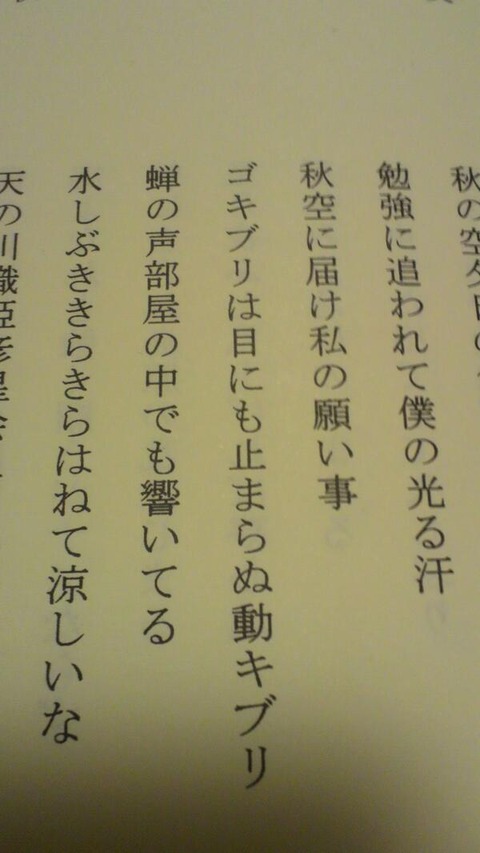 秋の空夕日の
勉強に追われて僕の光る汗
秋空に届け私の願い事
ゴキブリは目にも止まらぬ動キブリ
蝉の声部屋の中でも響いてる
水しぶききらきらはねて涼しいな
天の川織姫彦星会